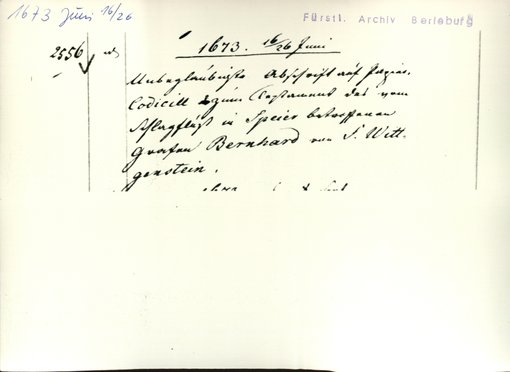 1673 Juni 16/26
Fürstl. Archiv Berleburg
2556
1673. 16/26 Juni
Unbeglaubigte Abschrift auf Papier.
Codicill zum Testament des vom
Schlagfluß in Speier betroffenen
Grafen Bernhard von S. Witt-
genstein.